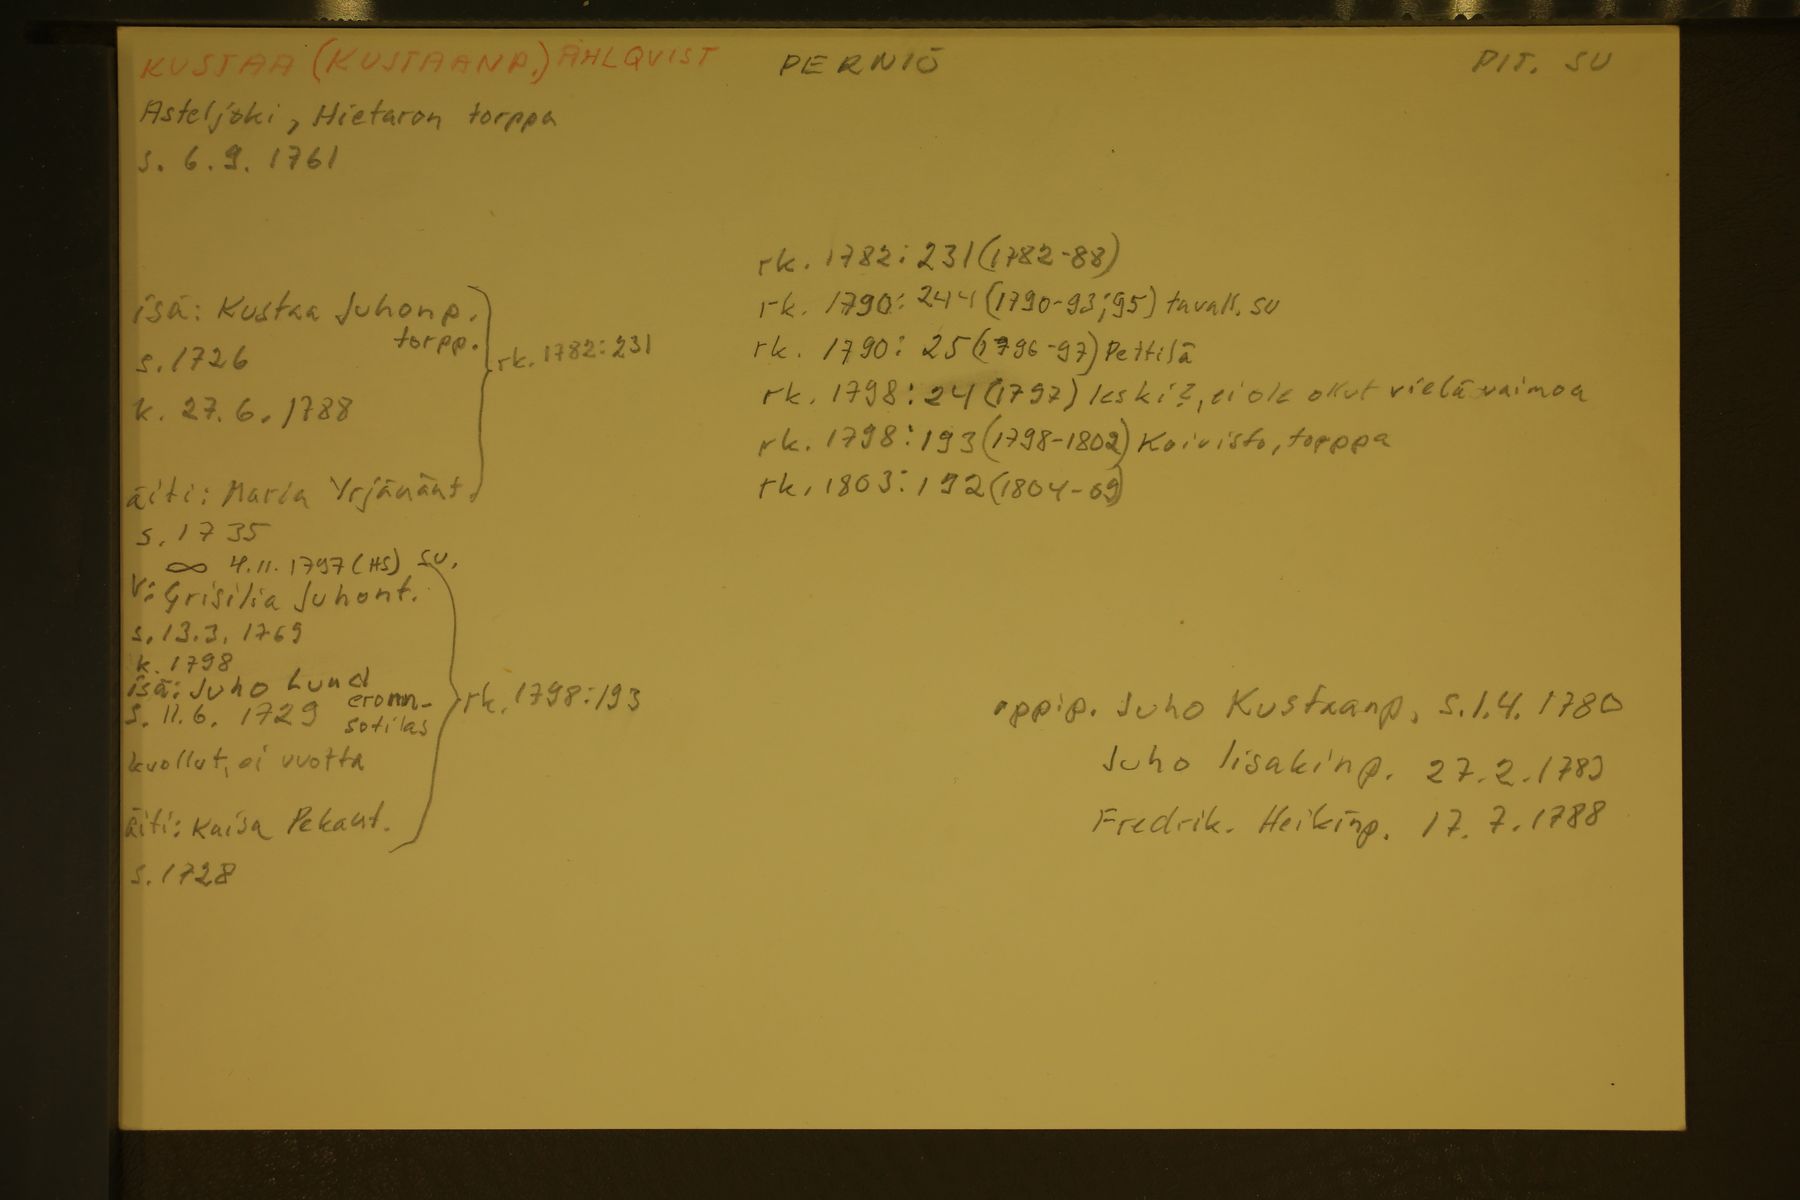 KUSTAA (KUSTAANP.) AHLQVIST PERNIÖ PIT. SU
Asteljoki, Hietaron torppa
s. 6.9. 1761
isä: Kustaa Juhonp.
torpp.
s. 1726
k. 27.6. 1788
rk. 1782:231
äiti: Maria Yrjänänt.
s. 1735
∞ 4.11. 1797 (HS) SU.
V: Grisilia Juhont.
s. 13.3. 1769
k. 1798
isä: Juho Lund
eronn.
s. 11.6. 1729 sotilas
kuollut, ei vuotta
äiti: Kaisa Pekant.
s. 1728
rk. 1798:193
rk. 1782:231 (1782-88)
rk. 1790:244 (1790-93;95) tavall. SU
rk. 1790: 25 (1796-97) Pettilä
rk. 1798:24 (1797) leski?, ei ole ollut vielä vaimoa
rk. 1798:193 (1798-1802) Koivisto, torppa
rk. 1803:192 (1804-09)
oppip. Juho Kustaanp. s. 1.4. 1780
Juho Iisakinp. 27.2.1783
Fredrik. Heikinp. 17.7.1788